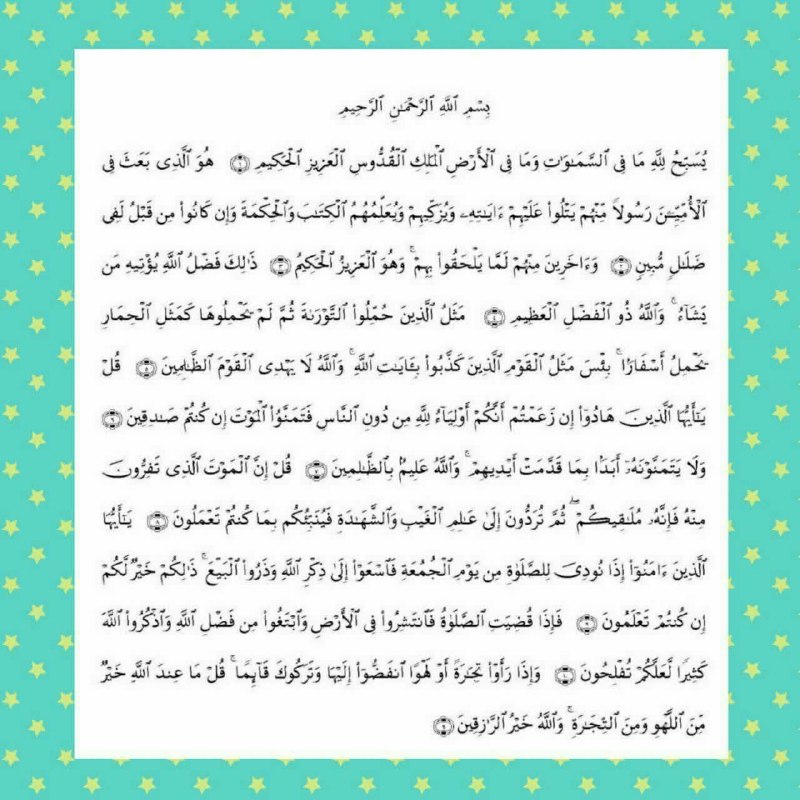 بِسْمِ ٱللَّهِ ٱلرَّحْمَـٰنِ ٱلرَّحِيمِ
يُسَبِّحُ لِلَّهِ مَا فِى ٱلسَّمَـٰوَٰتِ وَمَا فِى ٱلْأَرْضِ ٱلْمَلِكِ ٱلْقُدُّوسِ ٱلْعَزِيزِ ٱلْحَكِيمِ ۝١ هُوَ ٱلَّذِى بَعَثَ فِى
ٱلْأُمِّيِّـۧنَ رَسُولًا مِّنْهُمْ يَتْلُوا۟ عَلَيْهِمْ ءَايَـٰتِهِۦ وَيُزَكِّيهِمْ وَيُعَلِّمُهُمُ ٱلْكِتَـٰبَ وَٱلْحِكْمَةَ وَإِن كَانُوا۟ مِن قَبْلُ لَفِى
ضَلَـٰلٍ مُّبِينٍ ۝٢ وَءَاخَرِينَ مِنْهُمْ لَمَّا يَلْحَقُوا۟ بِهِمْ ۚ وَهُوَ ٱلْعَزِيزُ ٱلْحَكِيمُ ۝٣ ذَٰلِكَ فَضْلُ ٱللَّهِ يُؤْتِيهِ مَن
يَشَآءُ ۚ وَٱللَّهُ ذُو ٱلْفَضْلِ ٱلْعَظِيمِ ۝٤ مَثَلُ ٱلَّذِينَ حُمِّلُوا۟ ٱلتَّوْرَىٰةَ ثُمَّ لَمْ يَحْمِلُوهَا كَمَثَلِ ٱلْحِمَارِ
يَحْمِلُ أَسْفَارًۢا ۚ بِئْسَ مَثَلُ ٱلْقَوْمِ ٱلَّذِينَ كَذَّبُوا۟ بِـَٔايَـٰتِ ٱللَّهِ ۚ وَٱللَّهُ لَا يَهْدِى ٱلْقَوْمَ ٱلظَّـٰلِمِينَ ۝٥ قُلْ
يَـٰٓأَيُّهَا ٱلَّذِينَ هَادُوٓا۟ إِن زَعَمْتُمْ أَنَّكُمْ أَوْلِيَآءُ لِلَّهِ مِن دُونِ ٱلنَّاسِ فَتَمَنَّوُا۟ ٱلْمَوْتَ إِن كُنتُمْ صَـٰدِقِينَ ۝٦
وَلَا يَتَمَنَّوْنَهُۥٓ أَبَدًۢا بِمَا قَدَّمَتْ أَيْدِيهِمْ ۚ وَٱللَّهُ عَلِيمٌۢ بِٱلظَّـٰلِمِينَ ۝٧ قُلْ إِنَّ ٱلْمَوْتَ ٱلَّذِى تَفِرُّونَ
مِنْهُ فَإِنَّهُۥ مُلَـٰقِيكُمْ ۖ ثُمَّ تُرَدُّونَ إِلَىٰ عَـٰلِمِ ٱلْغَيْبِ وَٱلشَّهَـٰدَةِ فَيُنَبِّئُكُم بِمَا كُنتُمْ تَعْمَلُونَ ۝٨ يَـٰٓأَيُّهَا
ٱلَّذِينَ ءَامَنُوٓا۟ إِذَا نُودِىَ لِلصَّلَوٰةِ مِن يَوْمِ ٱلْجُمُعَةِ فَٱسْعَوْا۟ إِلَىٰ ذِكْرِ ٱللَّهِ وَذَرُوا۟ ٱلْبَيْعَ ۚ ذَٰلِكُمْ خَيْرٌ لَّكُمْ
إِن كُنتُمْ تَعْلَمُونَ ۝٩ فَإِذَا قُضِيَتِ ٱلصَّلَوٰةُ فَٱنتَشِرُوا۟ فِى ٱلْأَرْضِ وَٱبْتَغُوا۟ مِن فَضْلِ ٱللَّهِ وَٱذْكُرُوا۟ ٱللَّهَ
كَثِيرًا لَّعَلَّكُمْ تُفْلِحُونَ ۝١٠ وَإِذَا رَأَوْا۟ تِجَـٰرَةً أَوْ لَهْوًا ٱنفَضُّوٓا۟ إِلَيْهَا وَتَرَكُوكَ قَآئِمًا ۚ قُلْ مَا عِندَ ٱللَّهِ خَيْرٌ
مِّنَ ٱللَّهْوِ وَمِنَ ٱلتِّجَـٰرَةِ ۚ وَٱللَّهُ خَيْرُ ٱلرَّٰزِقِينَ ۝١١